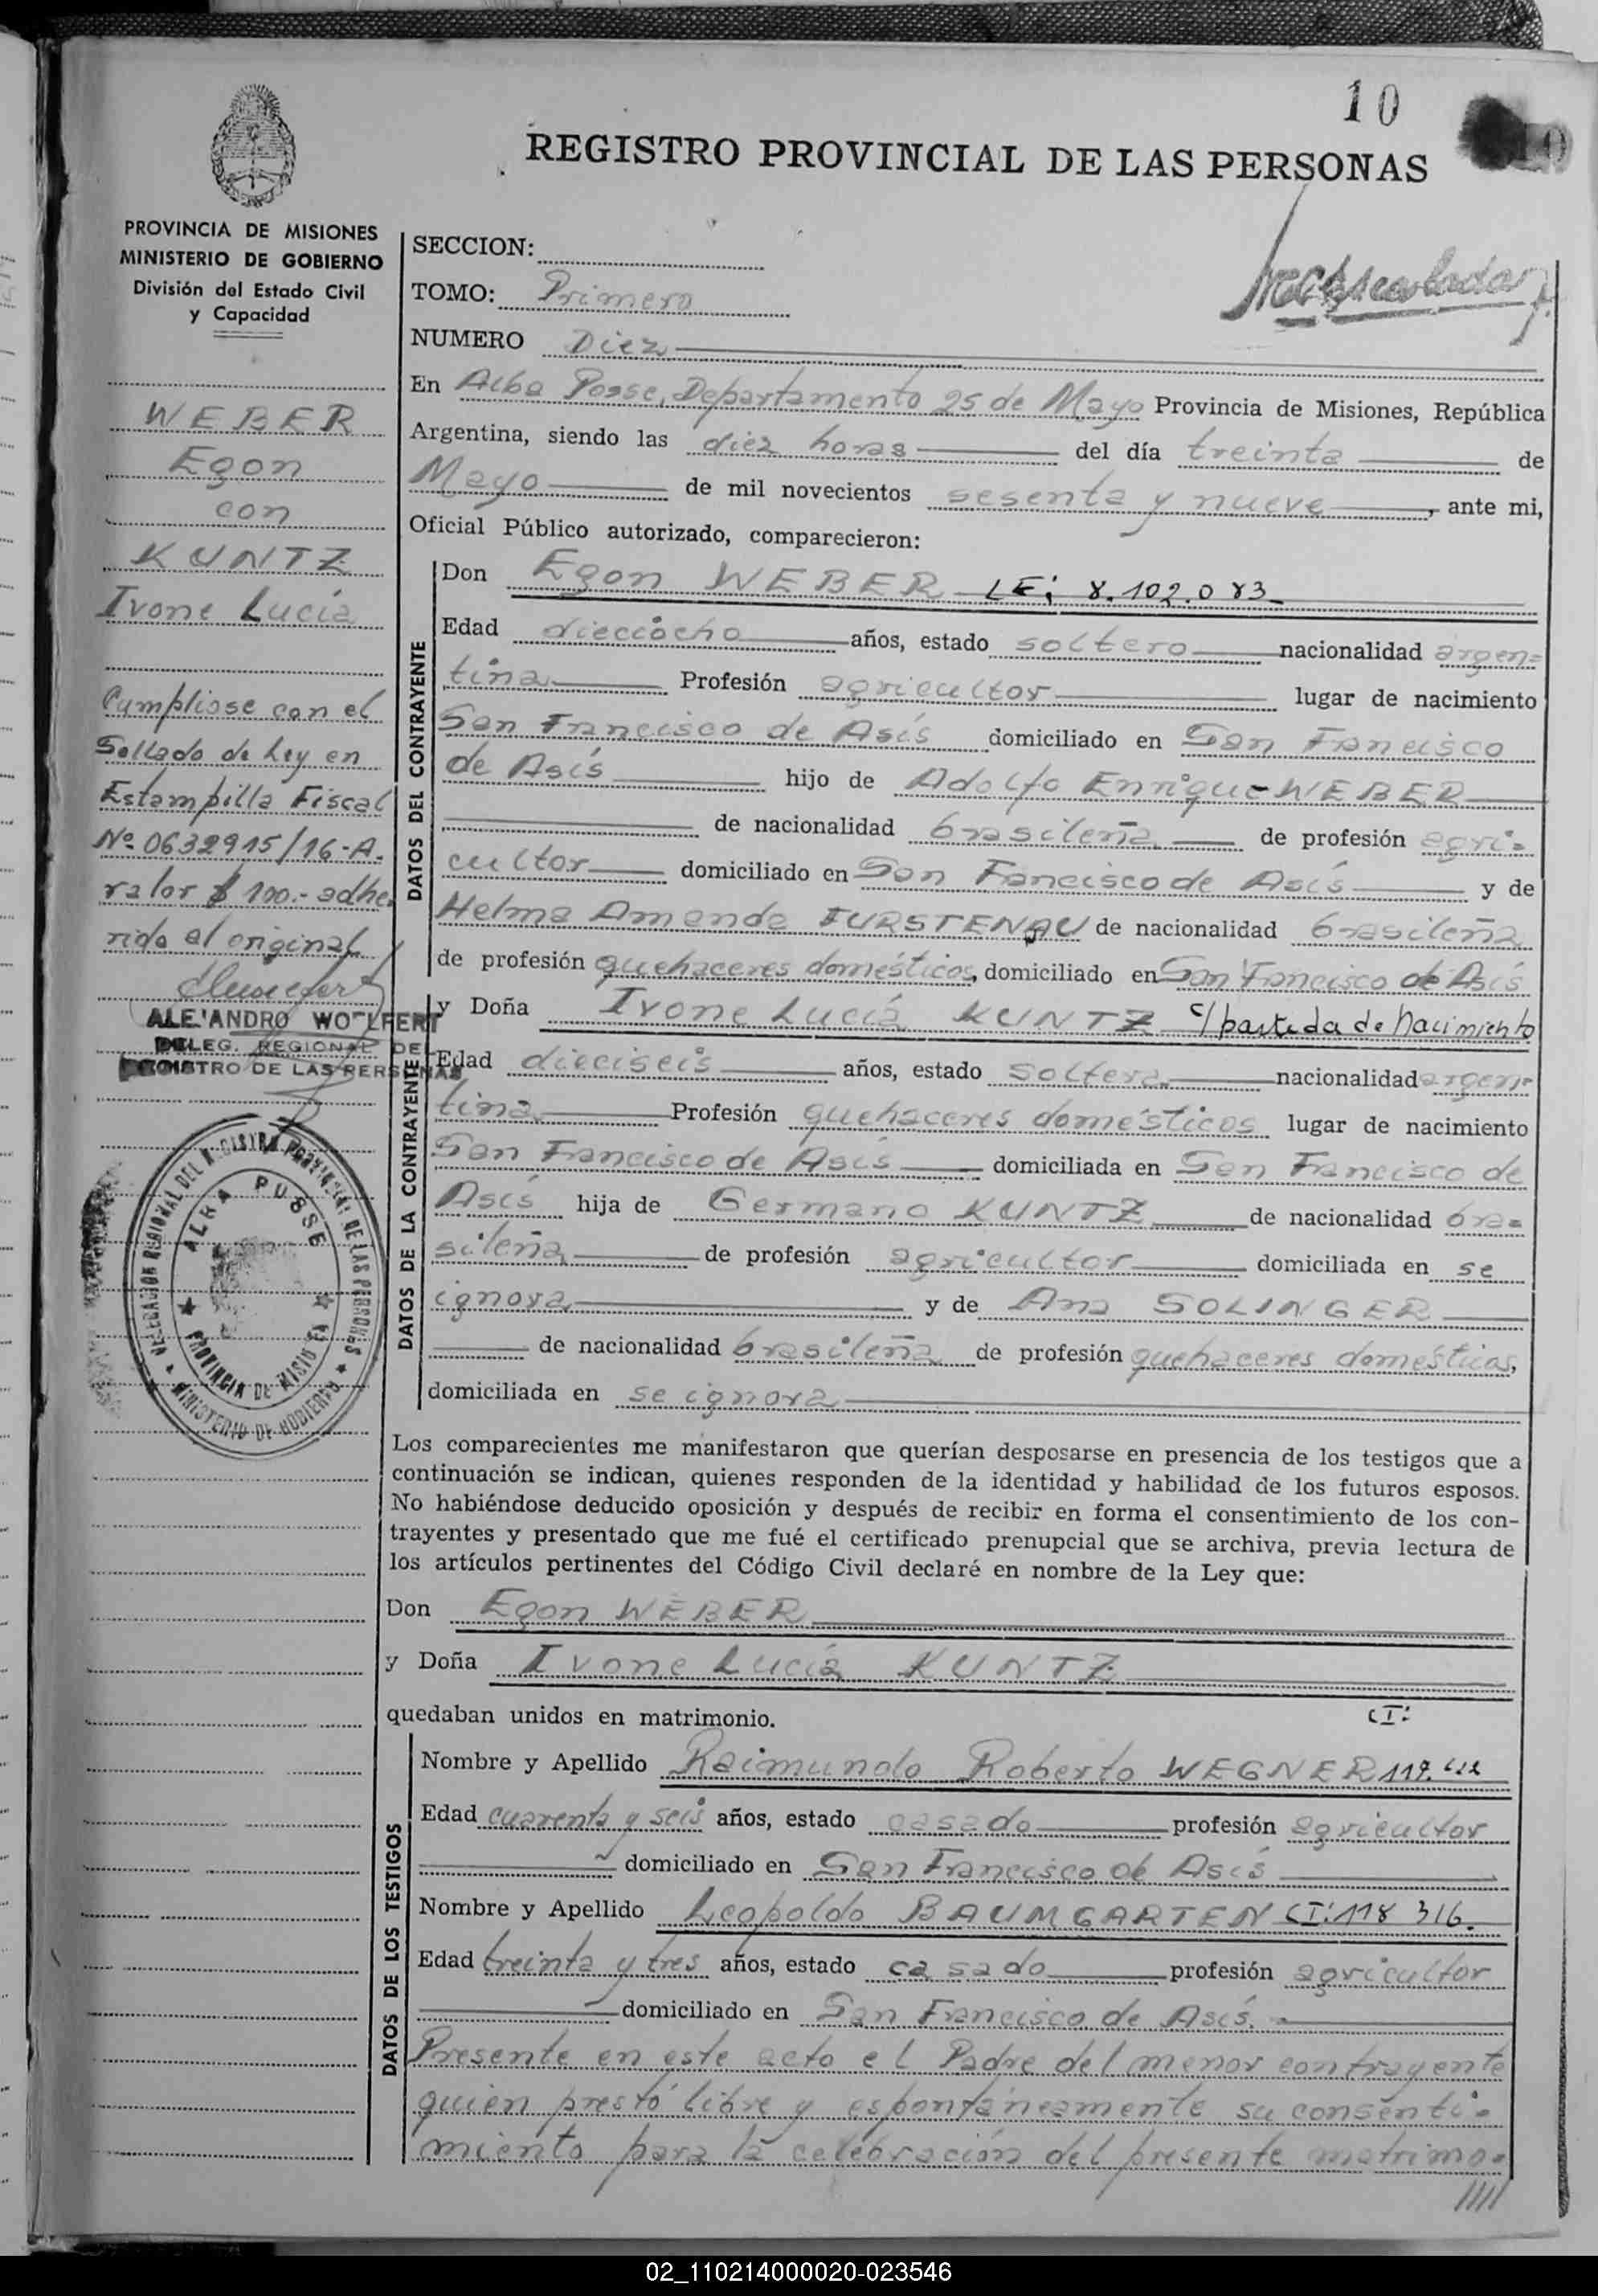 10
REGISTRO PROVINCIAL DE LAS PERSONAS
PROVINCIA DE MISIONES
MINISTERIO DE GOBIERNO
División del Estado Civil
y Capacidad
WEBER
Egon
con
KUNTZ
Ivone Lucía
Cumpliose con el
Sellado de Ley en
Estampilla Fiscal
Nº 0632915/16-A.
valor $ 100.- adhe
rido al original
ALEJANDRO WOLFERT
DELEG. REGIONAL DEL
REGISTRO DE LAS PERSONAS
DELEGACION REGIONAL DEL REGISTRO PROVINCIAL DE LAS PERSONAS
ALBA POSSE
PROVINCIA DE MISIONES
MINISTERIO DE GOBIERNO
SECCION:
TOMO: Primero
NUMERO Diez
En Alba Posse, Departamento 25 de Mayo Provincia de Misiones, República
Argentina, siendo las diez horas del día treinta de
Mayo de mil novecientos sesenta y nueve, ante mi,
Oficial Público autorizado, comparecieron:
DATOS DEL CONTRAYENTE
Don Egon WEBER LE: 8.102.083
Edad dieciocho años, estado soltero nacionalidad argen=
tina Profesión agricultor lugar de nacimiento
San Francisco de Asís domiciliado en San Francisco
de Asís hijo de Adolfo Enrique WEBER
de nacionalidad brasileña de profesión agri=
cultor domiciliado en San Fancisco de Asís y de
Helma Amanda FURSTENAU de nacionalidad brasileña
de profesión quehaceres domésticos, domiciliado en San Francisco de Asís
DATOS DE LA CONTRAYENTE
y Doña Ivone Lucía KUNTZ c/ partida de Nacimiento
Edad dieciseis años, estado soltera nacionalidad argen-
tina Profesión quehaceres domésticos lugar de nacimiento
San Francisco de Asís domiciliada en San Francisco de
Asís hija de Germano KUNTZ de nacionalidad bra=
sileña de profesión agricultor domiciliada en se
ignora y de Ana SOLINGER
de nacionalidad brasileña de profesión quehaceres domésticos,
domiciliada en se ignora
Los comparecientes me manifestaron que querían desposarse en presencia de los testigos que a
continuación se indican, quienes responden de la identidad y habilidad de los futuros esposos.
No habiéndose deducido oposición y después de recibir en forma el consentimiento de los con-
trayentes y presentado que me fué el certificado prenupcial que se archiva, previa lectura de
los artículos pertinentes del Código Civil declaré en nombre de la Ley que:
Don Egon WEBER
y Doña Ivone Lucía KUNTZ
quedaban unidos en matrimonio.
CI:
DATOS DE LOS TESTIGOS
Nombre y Apellido Raimundo Roberto WEGNER
Edad cuarenta y seis años, estado casado profesión agricultor
domiciliado en San Francisco de Asís
Nombre y Apellido Leopoldo BAUMGARTEN CI: 118 316.
Edad treinta y tres años, estado casado profesión agricultor
domiciliado en San Francisco de Asís.
Presente en este acto el Padre del menor contrayente
quien prestó libre y espontáneamente su consenti=
miento para la celebración del presente matrimo=
////
02_110214000020-023546